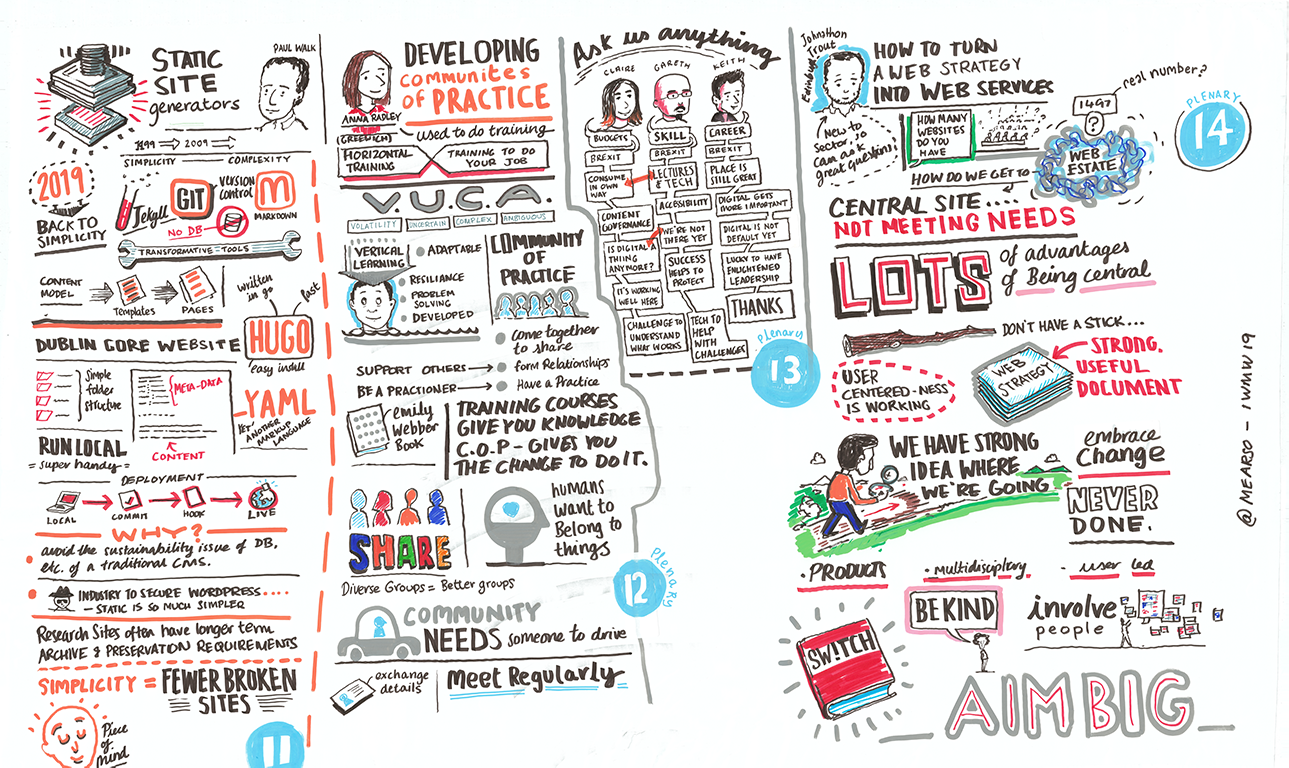 STATIC
SITE
generators
PAUL WALK
1999 ⇒ 2009 ⇒
SIMPLICITY COMPLEXITY
2019
BACK TO
SIMPLICITY
Jekyll
GIT
VERSION
control
M
MARKDOWN
NO DB
TRANSFORMATIVE TOOLS
CONTENT
MODEL
Templates
PAGES
written
in go
fast
HUGO
easy install
DUBLIN CORE WEBSITE
Simple
folder
structure
META-DATA
CONTENT
YAML
YET
ANOTHER
MARKUP
LANGUAGE
RUN LOCAL
= super handy =
DEPLOYMENT
LOCAL
COMMIT
HOOK
LIVE
WHY?
avoid the sustainability issue of DB,
etc. of a traditional CMS.
INDUSTRY TO SECURE WORDPRESS....
- STATIC IS SO MUCH SIMPLER
Research Sites often have longer term
ARCHIVE & PRESERVATION REQUIREMENTS
SIMPLICITY = FEWER BROKEN
SITES
Piece
of
mind
11
DEVELOPING
communites
OF PRACTICE
ANNA RADLEY
GREENWICH
used to do training
HORIZONTAL
TRAINING
TRAINING TO DO
YOUR JOB
V.U.C.A.
VOLATILITY
UNCERTAIN
COMPLEX
AMBIGUOUS
VERTICAL
LEARNING
ADAPTABLE
RESILIANCE
PROBLEM
SOLVING
DEVELOPED
COMMUNITY
OF
PRACTICE
come together
to share
SUPPORT OTHERS
form Relationships
BE A PRACTIONER
Have a Practice
emily
Webber
BOOK
TRAINING COURSES
GIVE YOU KNOWLEDGE
C.O.P - GIVES YOU
THE CHANGE TO DO IT.
SHARE
humans
want to
Belong to
things
Diverse Groups = Better groups
COMMUNITY
NEEDS someone to drive
exchange
details
Meet Regularly
Plenary
12
Ask us anything
CLAIRE
GARETH
KEITH
BUDGETS
BREXIT
CONSUME
IN OWN
WAY
CONTENT
GOVERNANCE
IS DIGITAL A
THING
ANYMORE?
IT'S WORKING
WELL HERE
CHALLENGE TO
UNDERSTAND
WHAT WORKS
SKILL
BREXIT
LECTURES
& TECH
ACCESSIBILITY
WE'RE NOT
THERE YET
SUCCESS
HELPS TO
PROTECT
TECH TO
HELP
WITH
CHALLENGES
CAREER
BREXIT
PLACE IS
STILL GREAT
DIGITAL GETS
MORE IMPORTANT
DIGITAL IS NOT
DEFAULT YET
LUCKY TO HAVE
ENLIGHTENED
LEADERSHIP
THANKS
Plenary
13
Johnathon
Trout
Edinburgh
HOW TO TURN
A WEB STRATEGY
INTO WEB SERVICES
New to
Sector, so
can ask
great Questions.
HOW MANY
WEBSITES
DO YOU
HAVE
1497
?
real number?
WEB
ESTATE
PLENARY
14
HOW DO WE GET TO
CENTRAL SITE ....
NOT MEETING NEEDS
LOTS
of advantages
of Being central
DON'T HAVE A STICK...
USER
CENTERED-NESS
IS WORKING
WEB
STRATEGY
STRONG,
USEFUL
DOCUMENT
WE HAVE STRONG
IDEA WHERE
WE'RE GOING
embrace
change
NEVER
DONE.
• PRODUCTS
• multidisciplary
• user led
SWITCH
BE KIND
involve
people
AIM BIG
@MEARSO - IWMW19